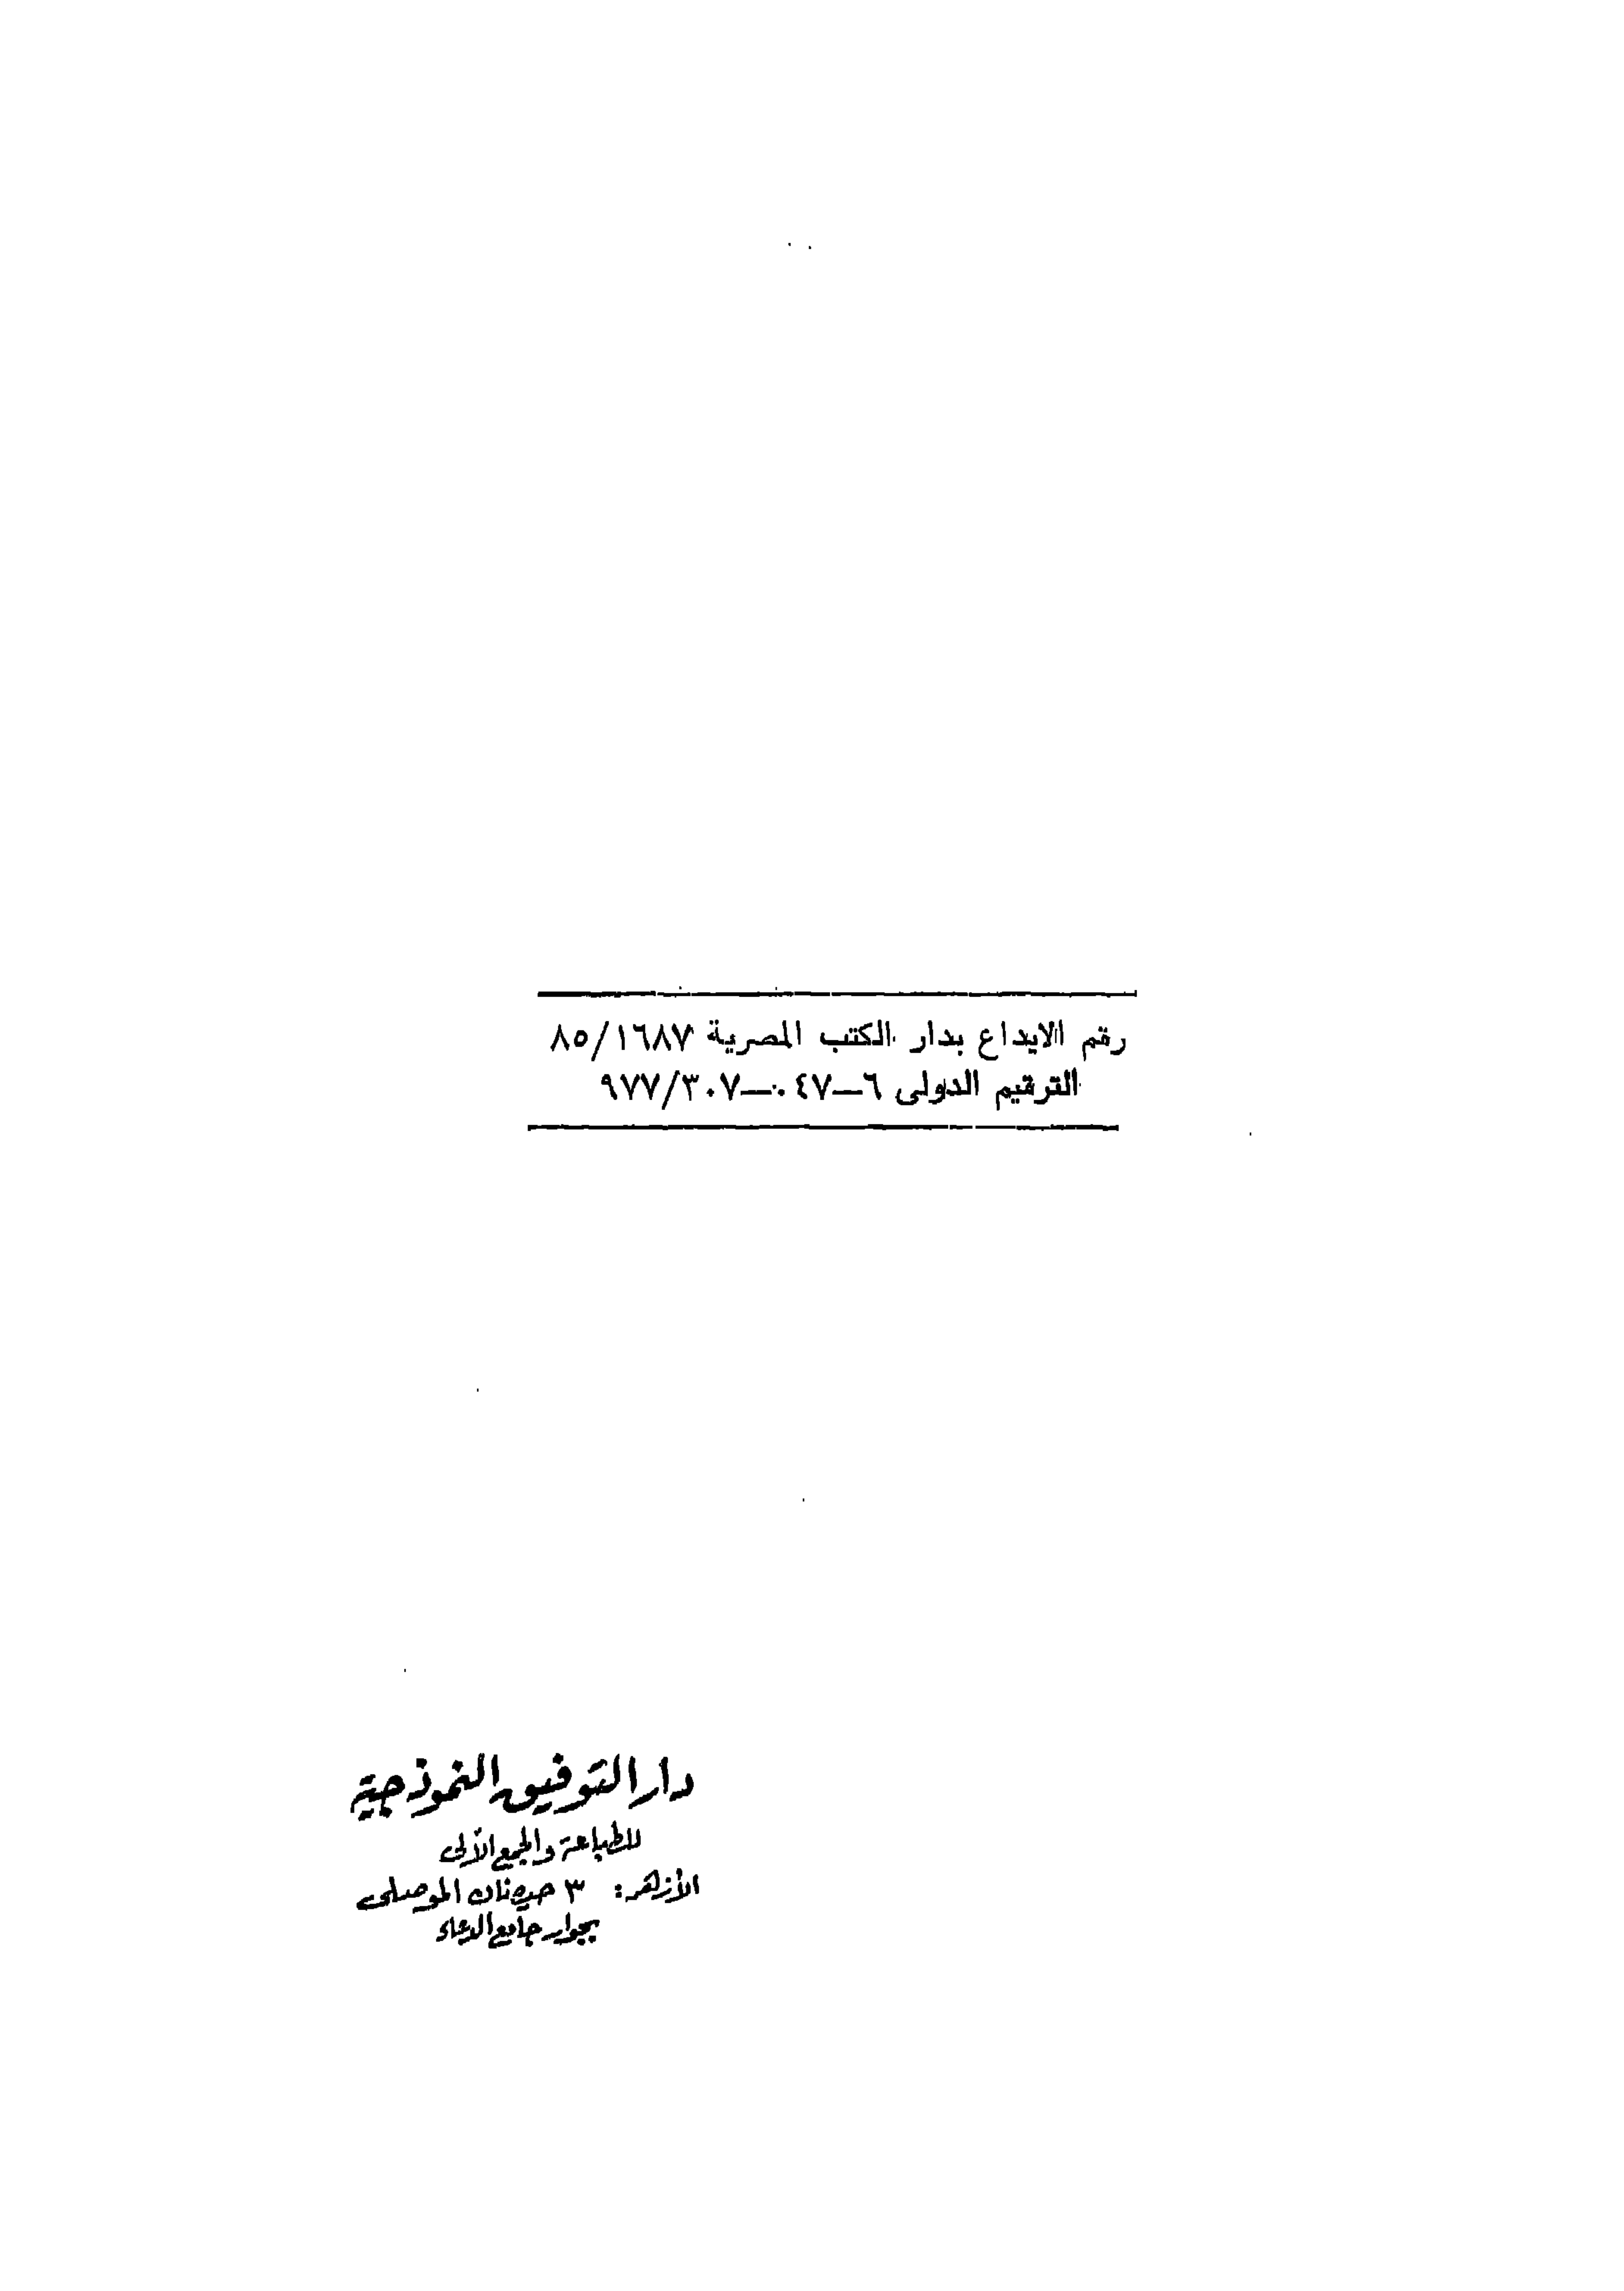 رقم الايداع بدار الكتب المصرية ٨٥/١٦٨٧
الترقيم الدولى ٦—٠٤٧—٩٧٧/٣٠٧
دار التوفيق النموذجية
للطباعة والجمع الآلى
الأزهر: ٣ الموصلى
بجوار جامع الدعاء